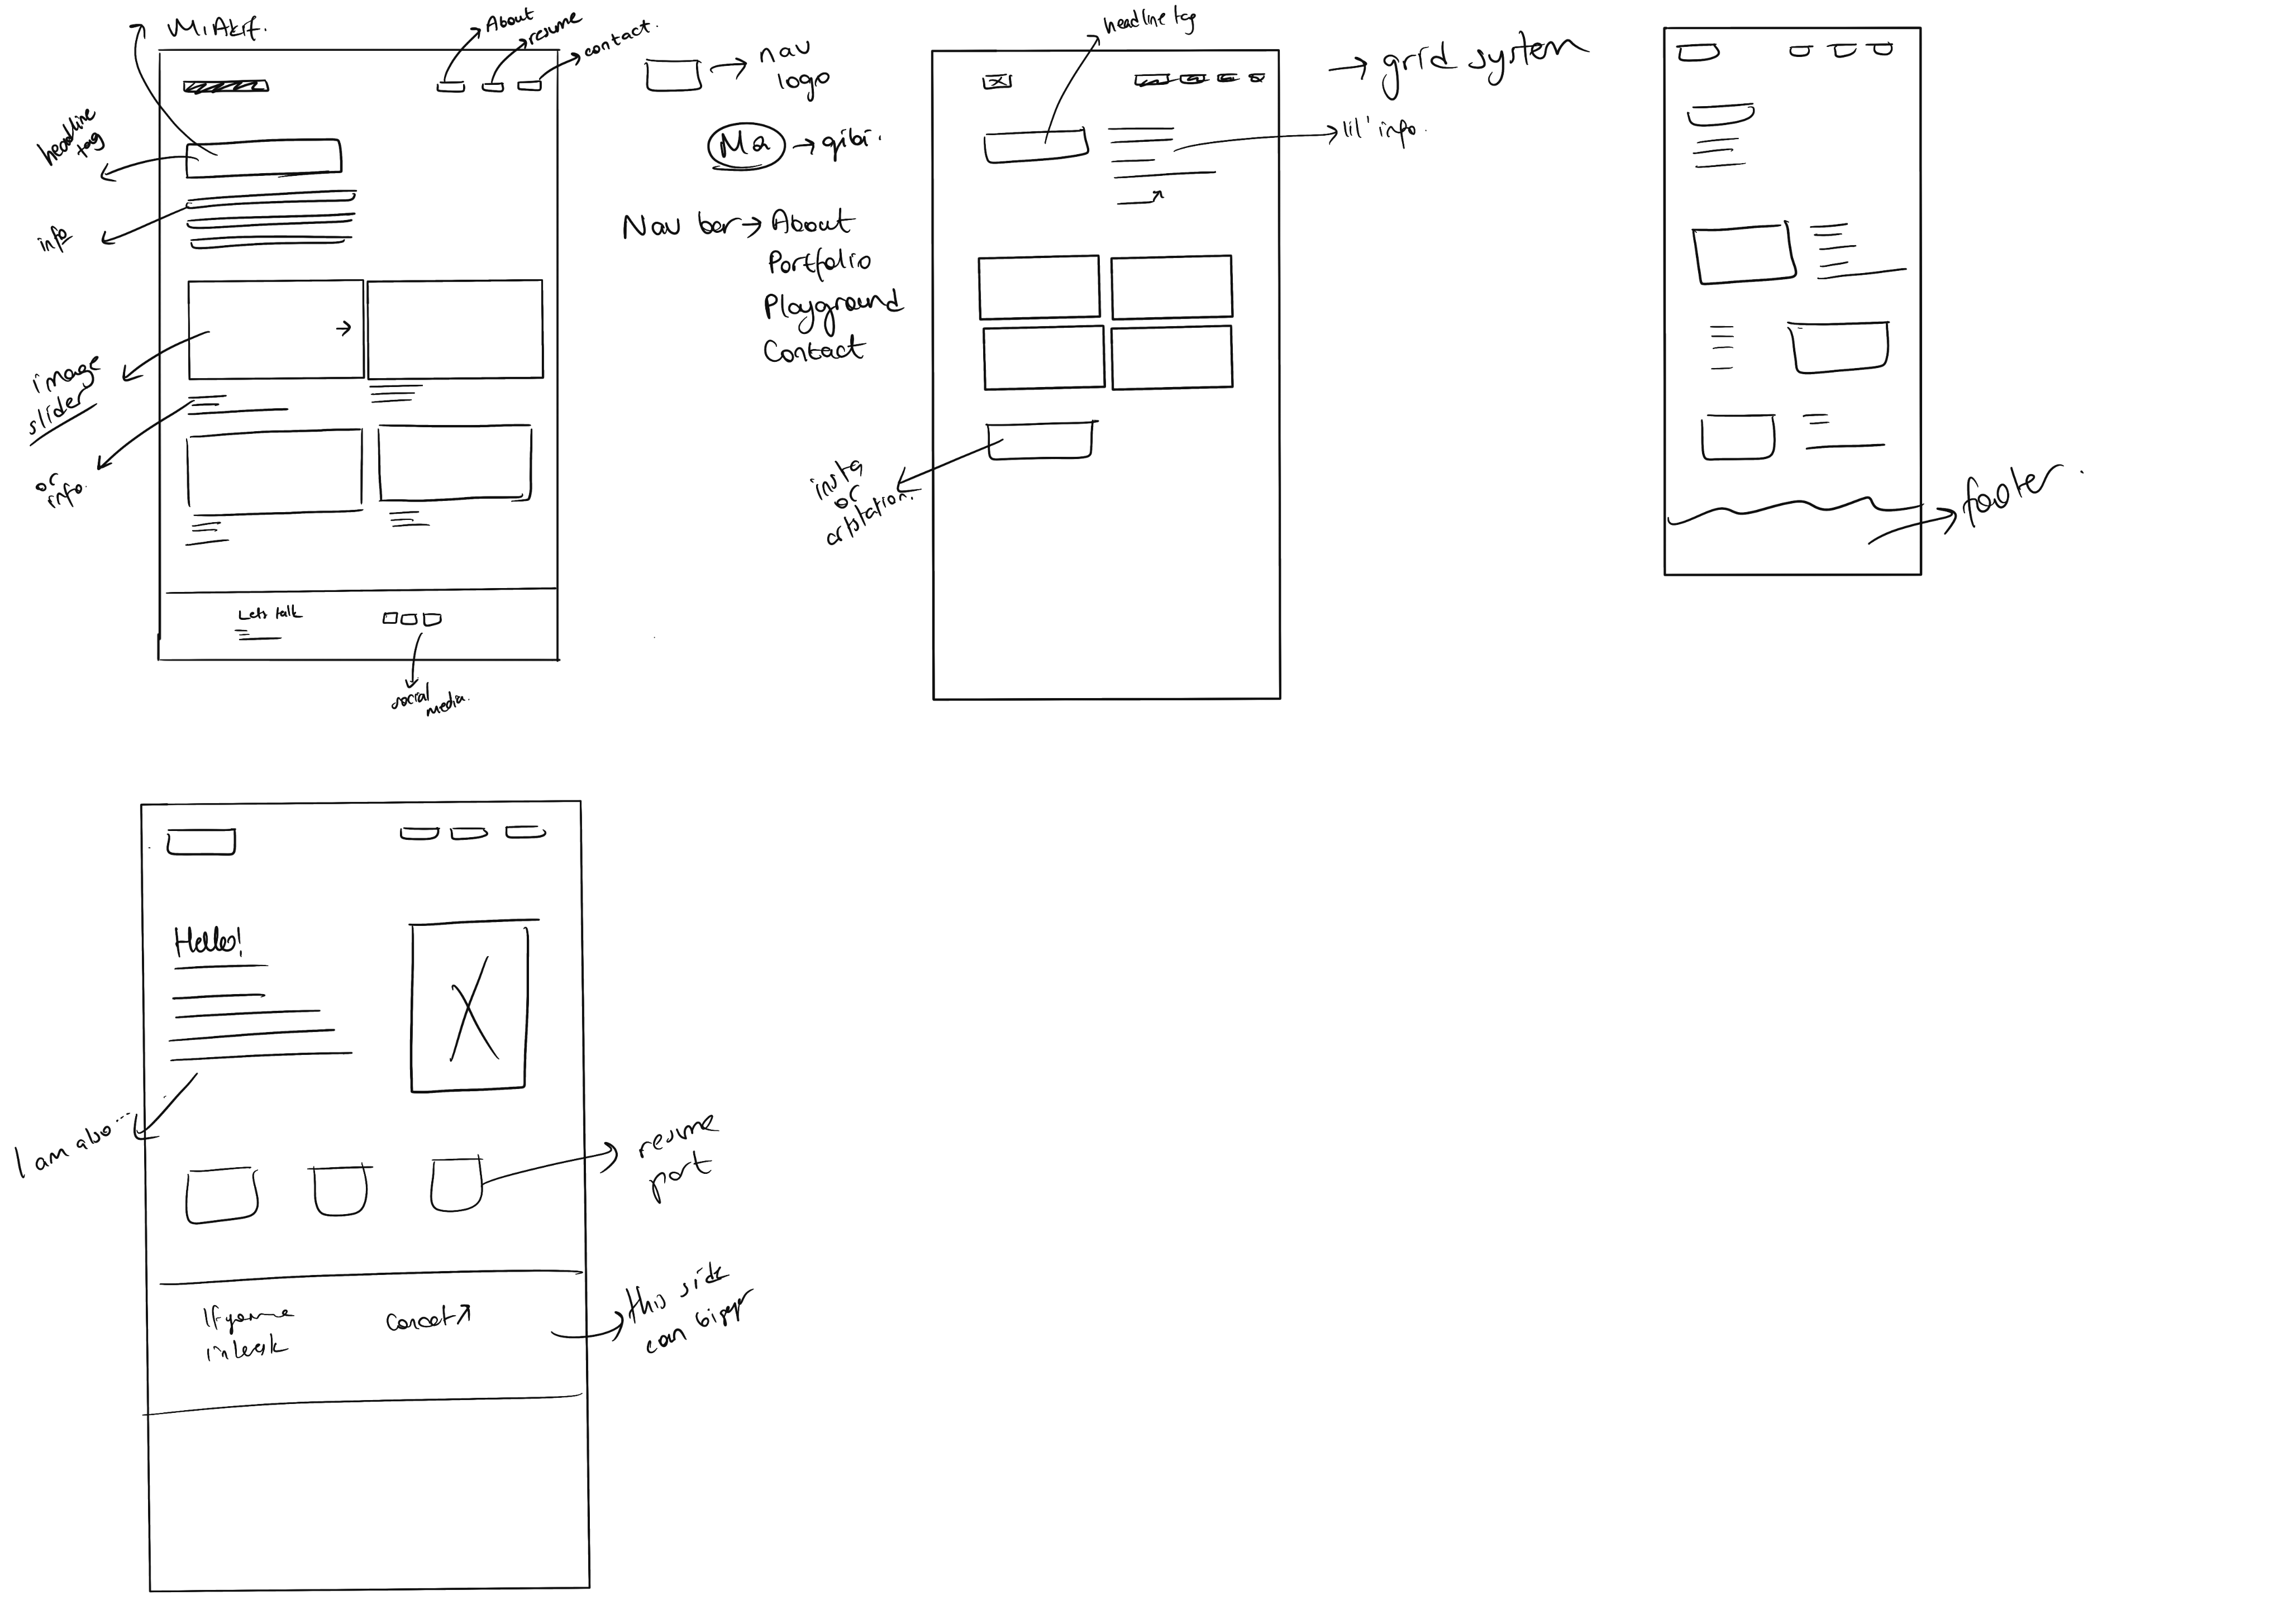 M. Akif.
About
resume
contact.
headline
tag
info
image
slider
or
info.
Lets talk
social
media.
nav
logo
Ma → gibi.
Nav bar → About
Portfolio
Playground
Contact
headline tag
→ grid system
lil' info.
insta
or
artstation.
footer.
Hello!
I am also ....
resume
port
this side
can bigger